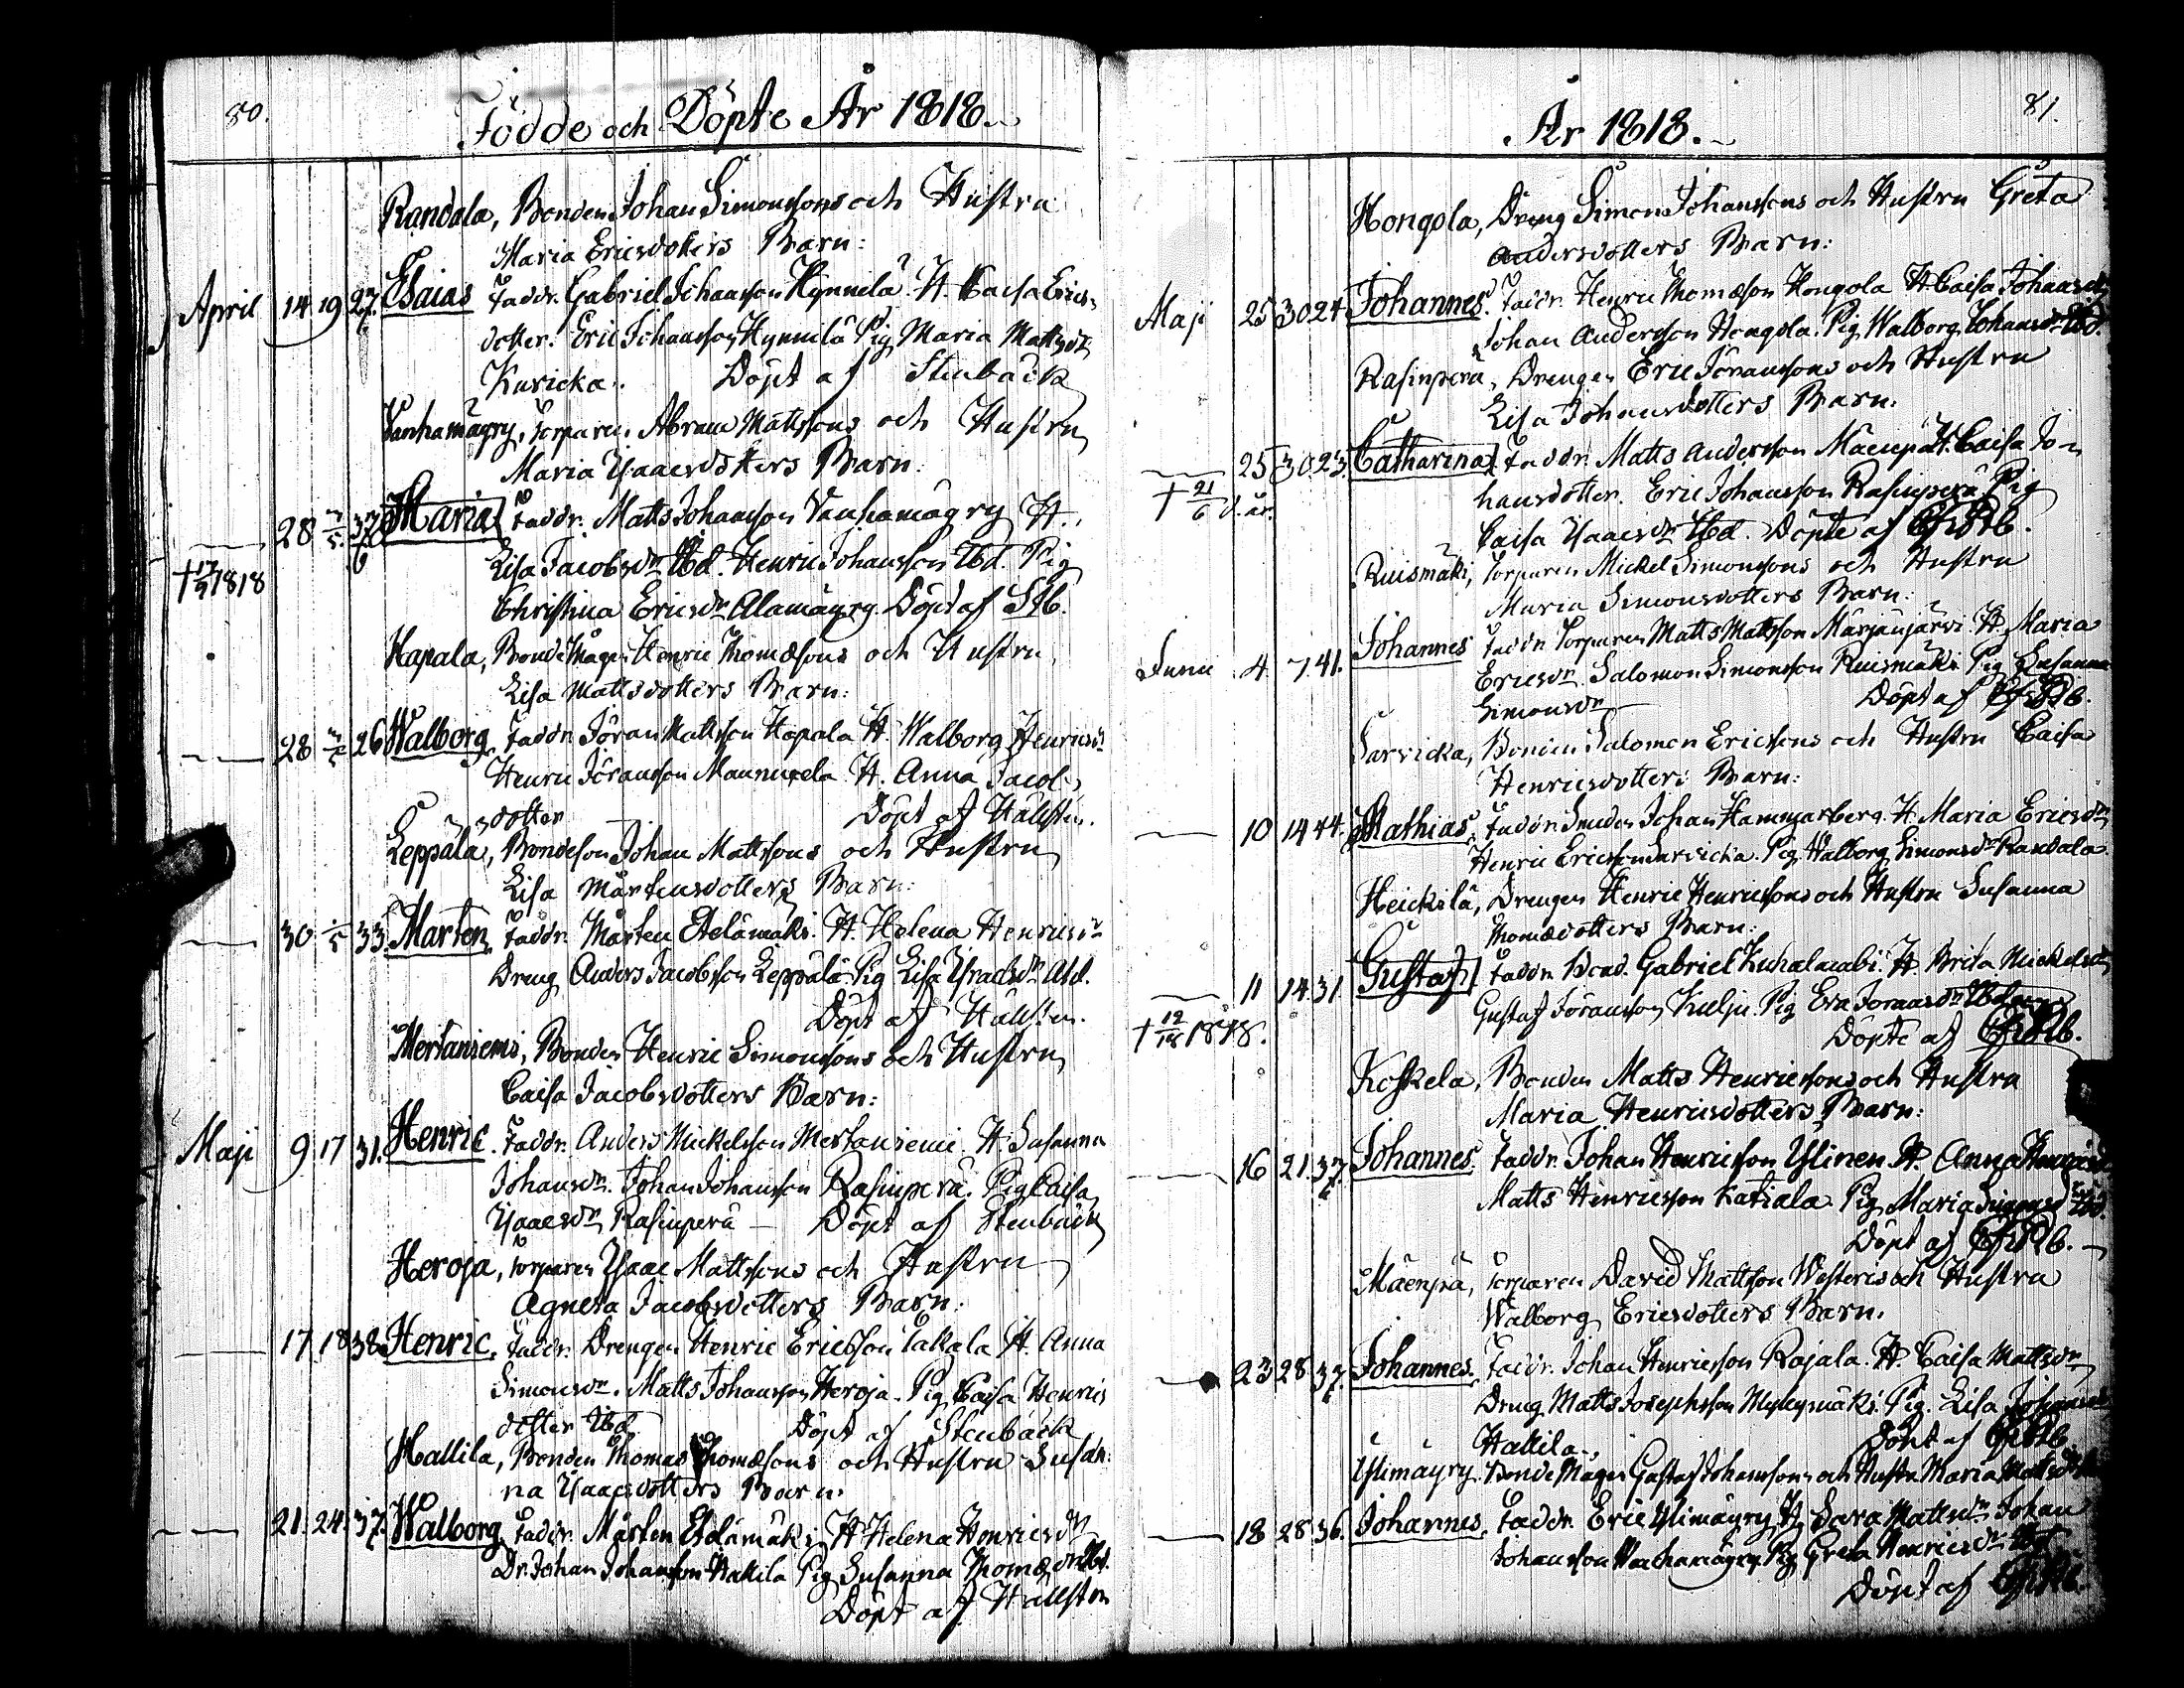 80.
Födde och Döpte År 1818.
Randala, Bonden Johan Simonssons och Hustru
Maria Ericsdotters Barn:
April 14 19 27. Esaias Faddr. Gabriel Johansson Hynnilä H. Caisa Erics
dotter. Eric Johansson Hynnilä Pig. Maria Mattsdr
Kuricka. Döpt af Stenbäck
Vanhamäyry, Torparen Abram Mattssons och Hustru
Maria Isaacsdotters Barn:
28 Maria Faddr. Matts Johansson Vanhamäyry H.
† 17/9 1818
Lisa Jacobsdr Ibd. Henric Johansson Ibd. Pig
Christina Ericsdr Alamäyry. Döpt af Stb.
Hapala, Bonde Mågen Henric Thomæsons och Hustru
Lisa Mattsdotters Barn:
28 26 Walborg Faddr. Jöran Mattsson Hapala H. Walborg Henricsdr
Henric Jöransson Mannuxela H. Anna Jacobs
dotter Döpt af Hällsten.
Leppälä, Bondeson Johan Mattssons och Hustru
Lisa Mårtensdotters Barn:
30 33. Mårten Faddr. Mårten Etelämäki. H. Helena Henricsdr
Dreng Anders Jacobsson Leppälä Pig Lisa Israelsdr Ibd.
Döpt af Hällsten.
Mertaniemi, Bonden Henric Simonssons och Hustru
Caisa Jacobsdotters Barn:
Maji 9 17 31. Henric. Faddr. Anders Mickelsson Mertaniemi H. Susanna
Johansdr. Johan Johansson Rasinperä. Pig Caisa
Isaacsdr Rasinperä — Döpt af Stenbäck
Heroja, Torparen Isaac Mattssons och Hustru
Agneta Jacobsdotters Barn:
17 18 38. Henric, Faddr. Drengen Henric Ericsson Takala H. Anna
Simonsdr. Matts Johansson Heroja. Pig Caisa Henrics
dotter Ibd. Döpt af Stenbäck
Hallila, Bonden Thomas Thomæsons och Hustru Susan:
na Isaacsdotters Barn:
21. 24. 37. Walborg Faddr. Mårten Etelämäki H. Helena Henricsdr
Dr. Johan Johansson Hallila Pig Susanna Thomædr Ibd.
Döpt af Hällsten
81.
År 1818.
Hongola, Dreng Simon Johanssons och Hustru Greta
Andersdotters Barn:
Maji 25 30 24 Johannes. Faddr. Henric Thomæson Hongola H. Caisa Johansdr
Johan Andersson Hongola. Pig Walborg Johansdr Ibd.
Rasinperä, Drengen Eric Jöranssons och Hustru
Lisa Johansdotters Barn:
25 30 23. Catharina Faddr. Matts Andersson Mäenpä H. Caisa Jo-
† 21/6 d. år.
hansdotter. Eric Johansson Rasinperä Pig
Caisa Isaacsdr Ibd. Döpte af
Ruismäki, Torparen Mickel Simonssons och Hustru
Maria Simonsdotters Barn:
Junii 4 7 41. Johannes Faddr. Torparen Matts Mattsson Märjänjärvi H. Maria
Ericsdr. Salomon Simonsson Ruismäki Pig Susanna
Simonsdr — Döpt af
Sarvicka, Bonden Salomon Ericssons och Hustru Caisa
Henricsdotters Barn:
10 14 44. Mathias, Faddr. Smeden Johan Hammarberg. H. Maria Ericsdr
Henric Ericsson Sarvicka. Pig Walborg Simonsdr Randala.
Heickilä, Drengen Henric Henricssons och Hustru Susanna
Thomædotters Barn:
11 14 31 Gustaf Faddr. Gabriel H. Brita Mickelsdr
† 12/18 1818.
Gustaf Jöransson Kulju. Pig Eva Jöransdr Ibd.
Döpte af
Koskela, Bonden Matts Henricssons och Hustru
Maria Henricsdotters Barn:
16 21 37. Johannes. Faddr. Johan Henricsson Ylinen H. Anna
Matts Henricsson Katiala Pig Maria Ibd.
Döpt af
Mäenpä, Torparen David Mattsson Westeris och Hustru
Walborg Ericsdotters Barn.
23 28 37. Johannes. Faddr. Johan Henricsson Rajala. H. Caisa Mattsdr
Dreng Matts Josephsson Myllymäki. Pig. Lisa
Hallila. Döpt af
Ylimäyry. Bonde Mågen Gustaf Johanssons och Hustru Maria
18 28 36. Johannes, Faddr. Eric Ylimäyry H. Sara Mattsdr Johan
Johansson Vanhamäyry Pig Greta Henricsdr Ibd.
Döpt af